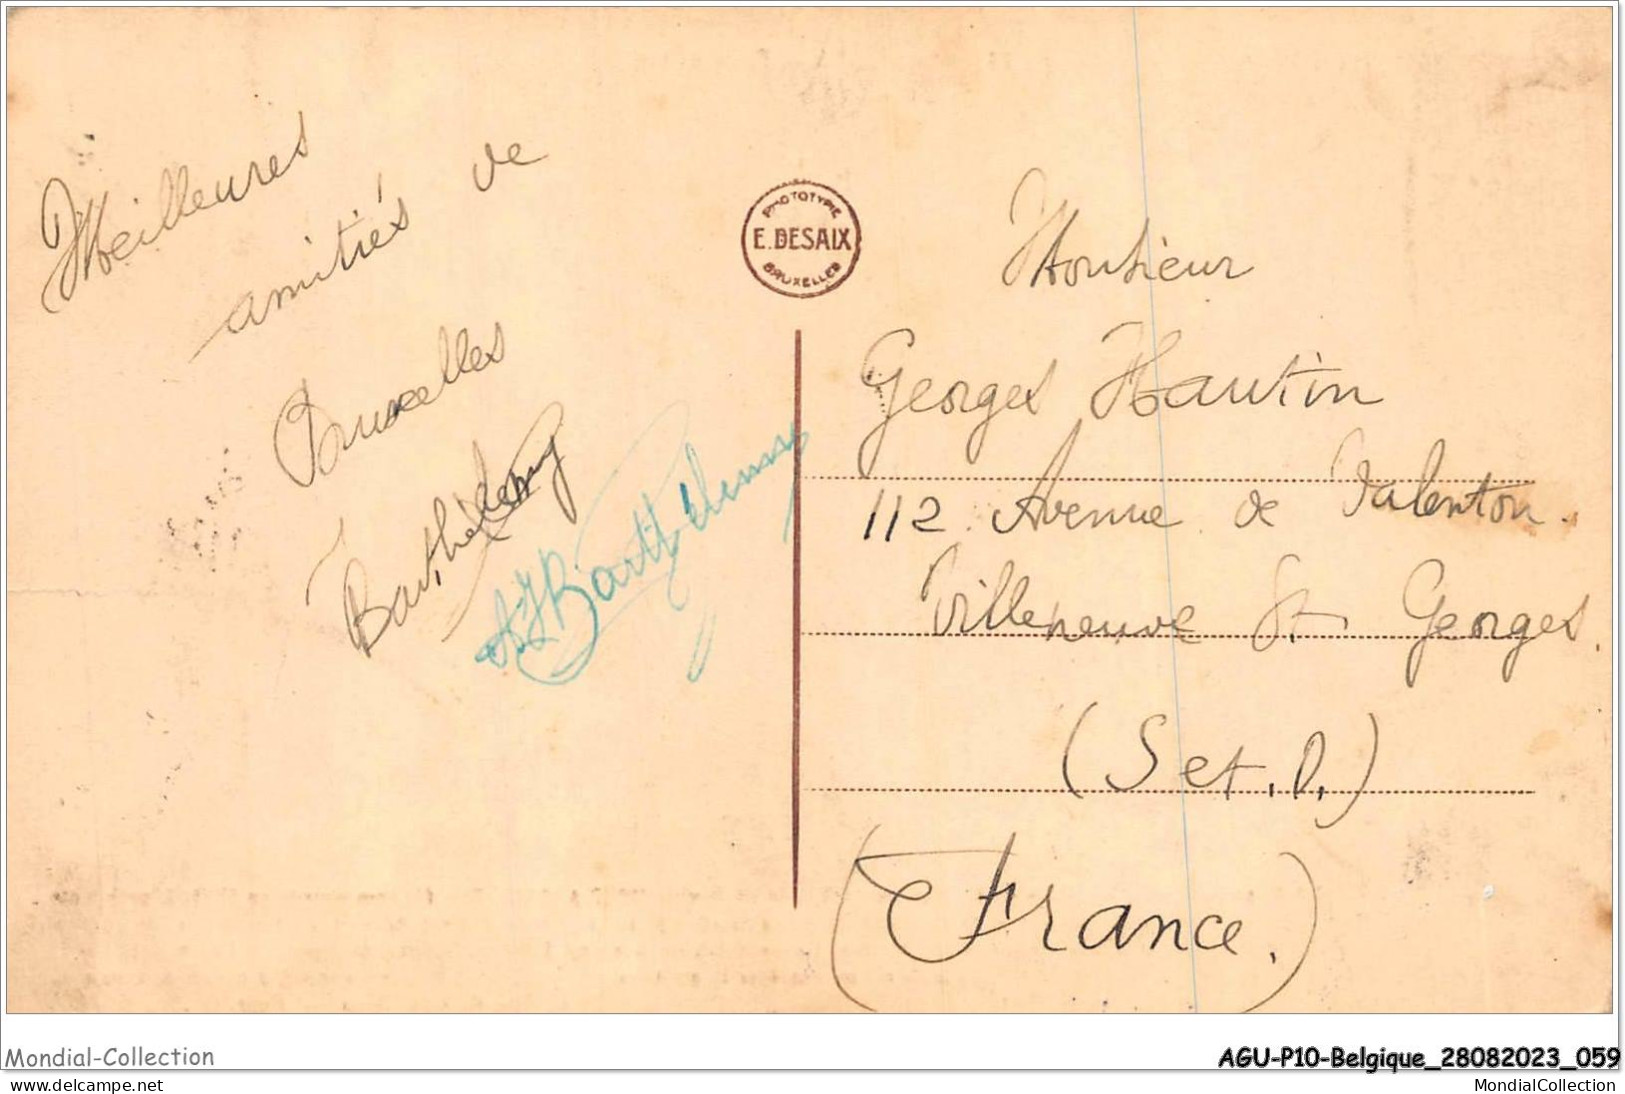 Meilleures
amitiés de
Bruxelles
Barthélemy
Barthélemy
PHOTOTYPIE
E. DESAIX
BRUXELLES
Monsieur
Georges Hautin
112 Avenue de Valenton.
Villeneuve St Georges.
(S et. O.)
(France.)
Mondial-Collection
AGU-P10-Belgique_28082023_059
www.delcampe.net
MondialCollection